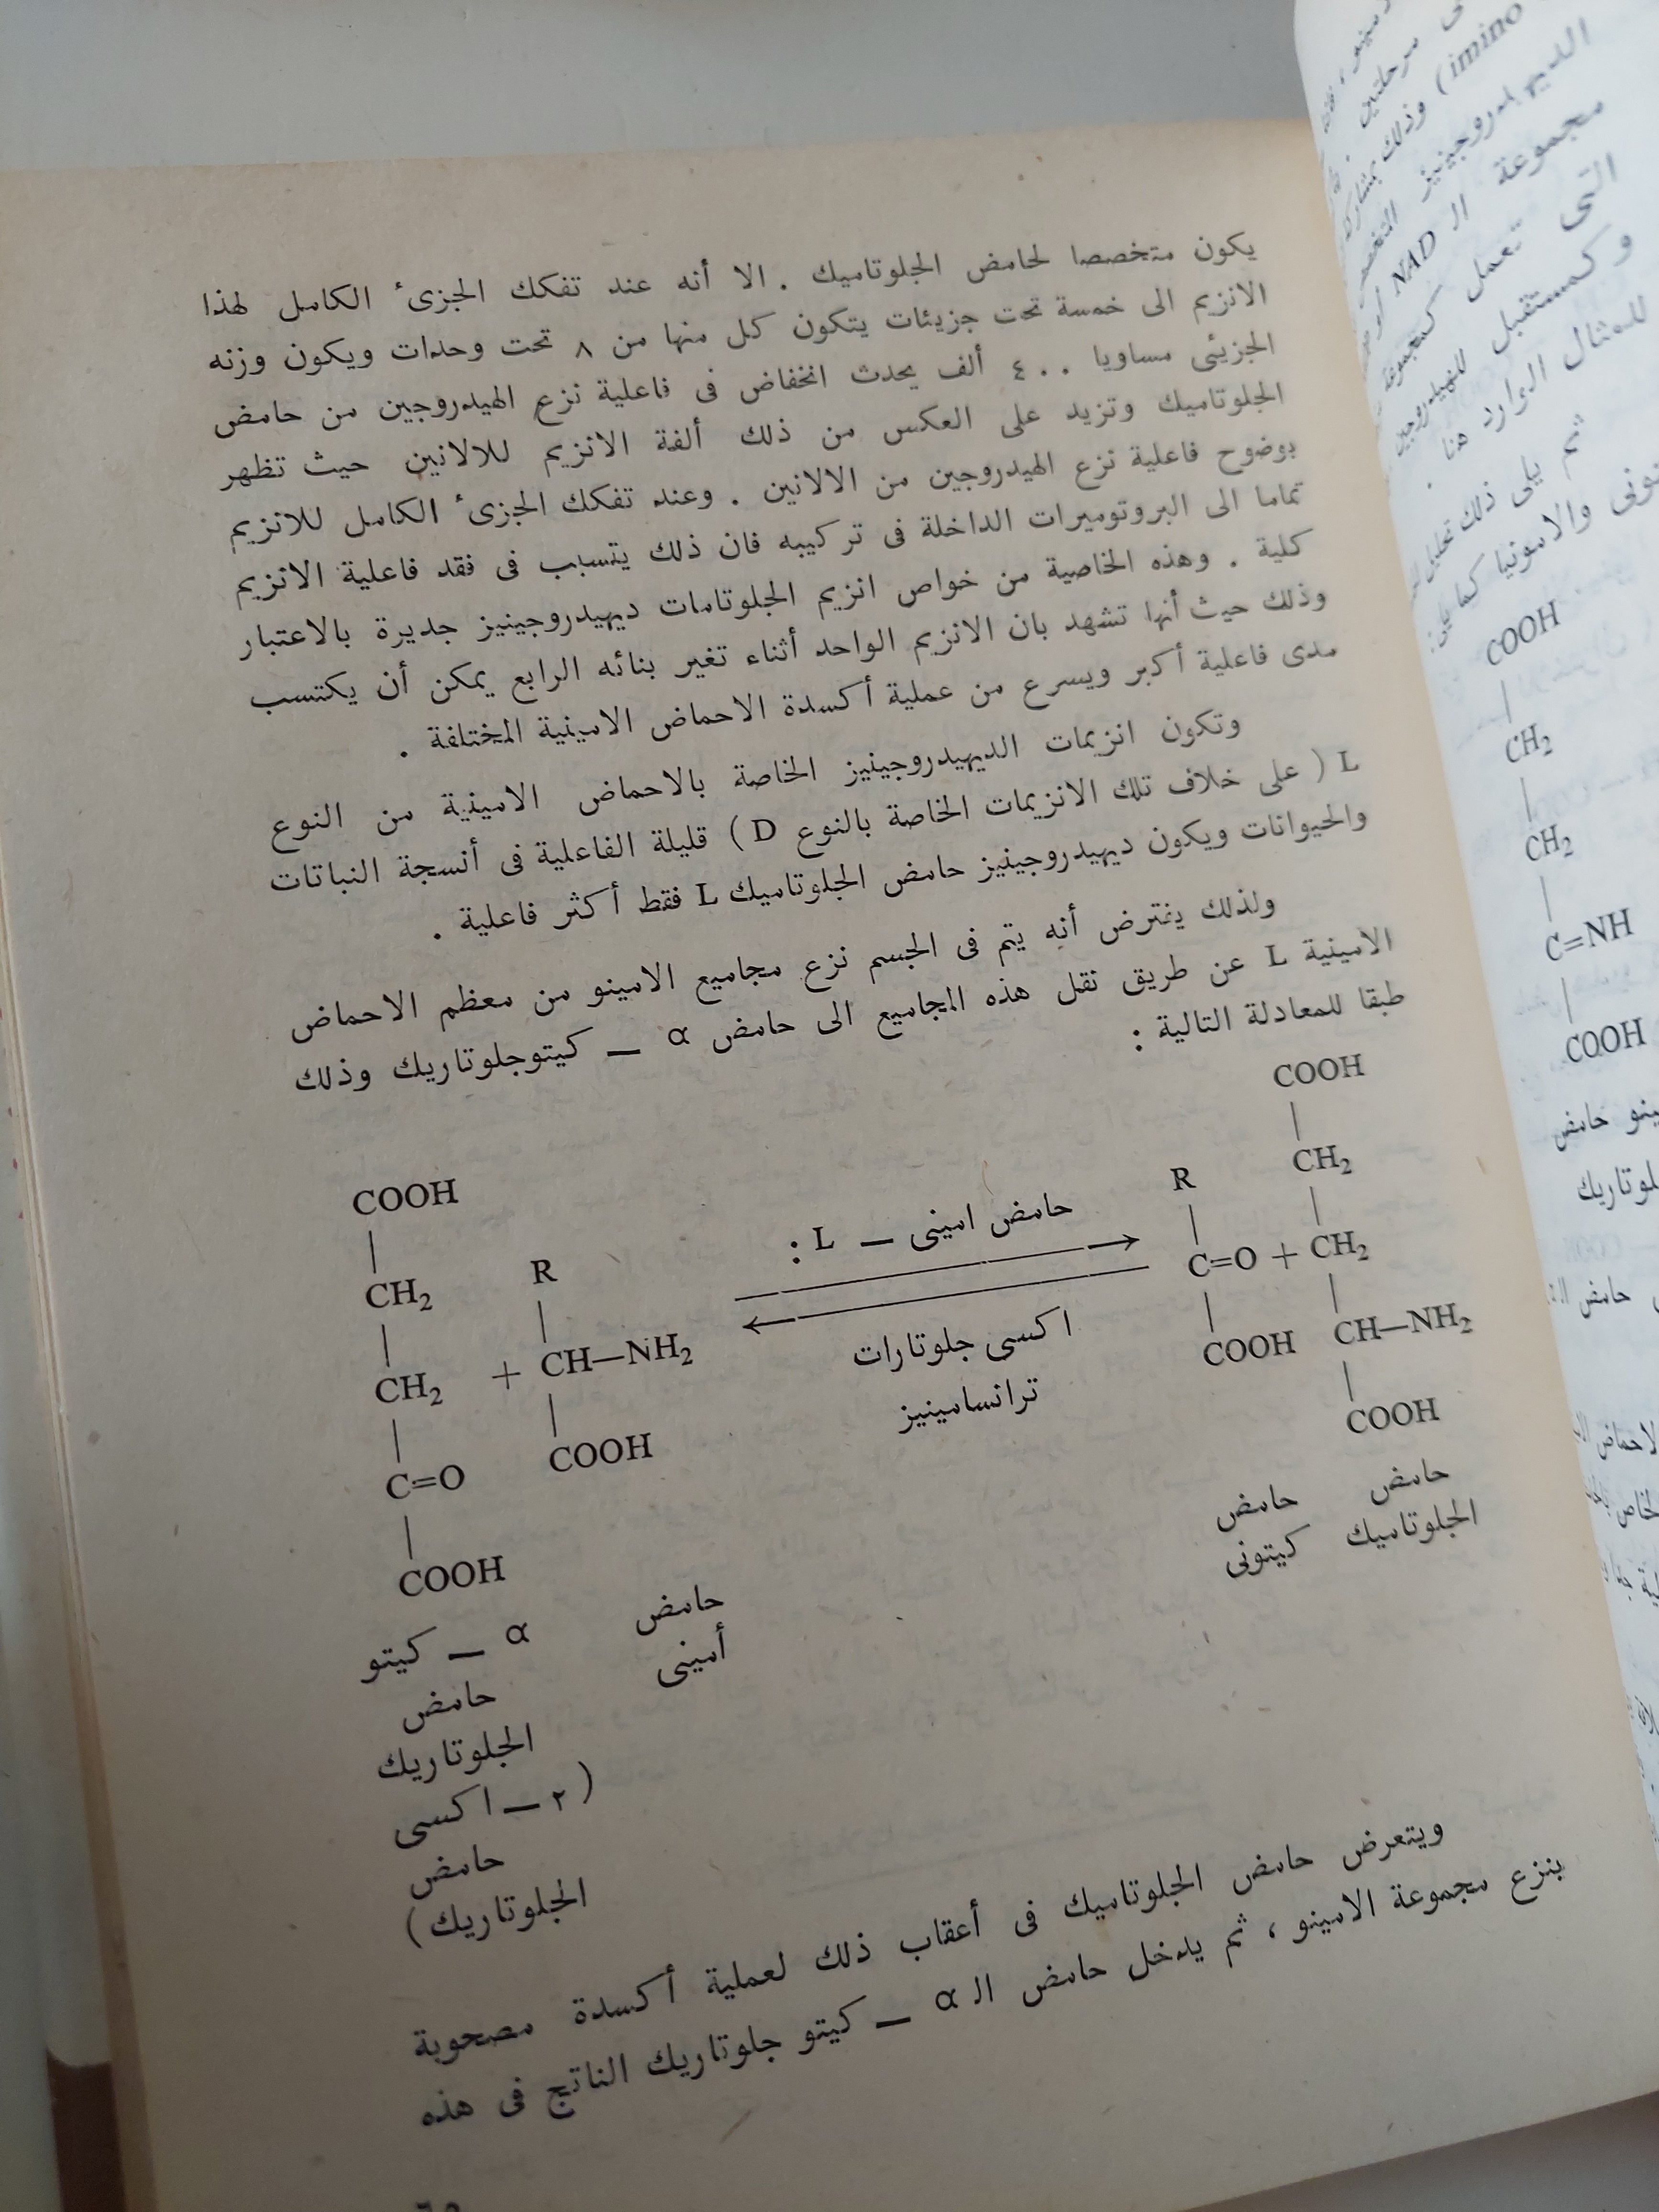 يكون متخصصا لحامض الجلوتاميك . الا أنه عند تفكك الجزىء الكامل لهذا
الانزيم الى خمسة تحت جزيئات يتكون كل منها من ٨ تحت وحدات ويكون وزنه
الجزيئى مساويا ٤٠٠ ألف يحدث انخفاض فى فاعلية نزع الهيدروجين من حامض
الجلوتاميك وتزيد على العكس من ذلك ألفة الانزيم للالانين حيث تظهر
بوضوح فاعلية نزع الهيدروجين من الالانين . وعند تفكك الجزىء الكامل للانزيم
تماما الى البروتوميرات الداخلة فى تركيبه فان ذلك يتسبب فى فقد فاعلية الانزيم
كلية . وهذه الخاصية من خواص انزيم الجلوتامات ديهيدروجينيز جديرة بالاعتبار
وذلك حيث أنها تشهد بان الانزيم الواحد أثناء تغير بنائه الرابع يمكن أن يكتسب
مدى فاعلية أكبر ويسرع من عملية أكسدة الاحماض الامينية المختلفة .
وتكون انزيمات الديهيدروجينيز الخاصة بالاحماض الامينية من النوع
L ( على خلاف تلك الانزيمات الخاصة بالنوع D ) قليلة الفاعلية فى أنسجة النباتات
والحيوانات ويكون ديهيدروجينيز حامض الجلوتاميك L فقط أكثر فاعلية .
ولذلك يفترض أنه يتم فى الجسم نزع مجاميع الامينو من معظم الاحماض
الامينية L عن طريق نقل هذه المجاميع الى حامض α — كيتوجلوتاريك وذلك
طبقا للمعادلة التالية :
COOH
CH2
CH2
C=O
COOH
+
R
CH—NH2
COOH
حامض امينى — L :
اكسى جلوتارات
ترانسامينيز
R
C=O
COOH
+
COOH
CH2
CH2
CH—NH2
COOH
حامض
الجلوتاميك
حامض
كيتونى
حامض
أمينى
α — كيتو
حامض
الجلوتاريك
( ٢ — اكسى
حامض
الجلوتاريك )
ويتعرض حامض الجلوتاميك فى أعقاب ذلك لعملية أكسدة مصحوبة
بنزع مجموعة الامينو ، ثم يدخل حامض الـ α — كيتو جلوتاريك الناتج فى هذه
مرحلتين
(imino
وذلك
مجموعة الـ NAD
التى تعمل
وكمستقبل للهيدروجين
للمثال الوارد هنا .
ثم يلى ذلك
والامونيا كما يلى :
COOH
CH2
CH2
C=NH
COOH
حامض